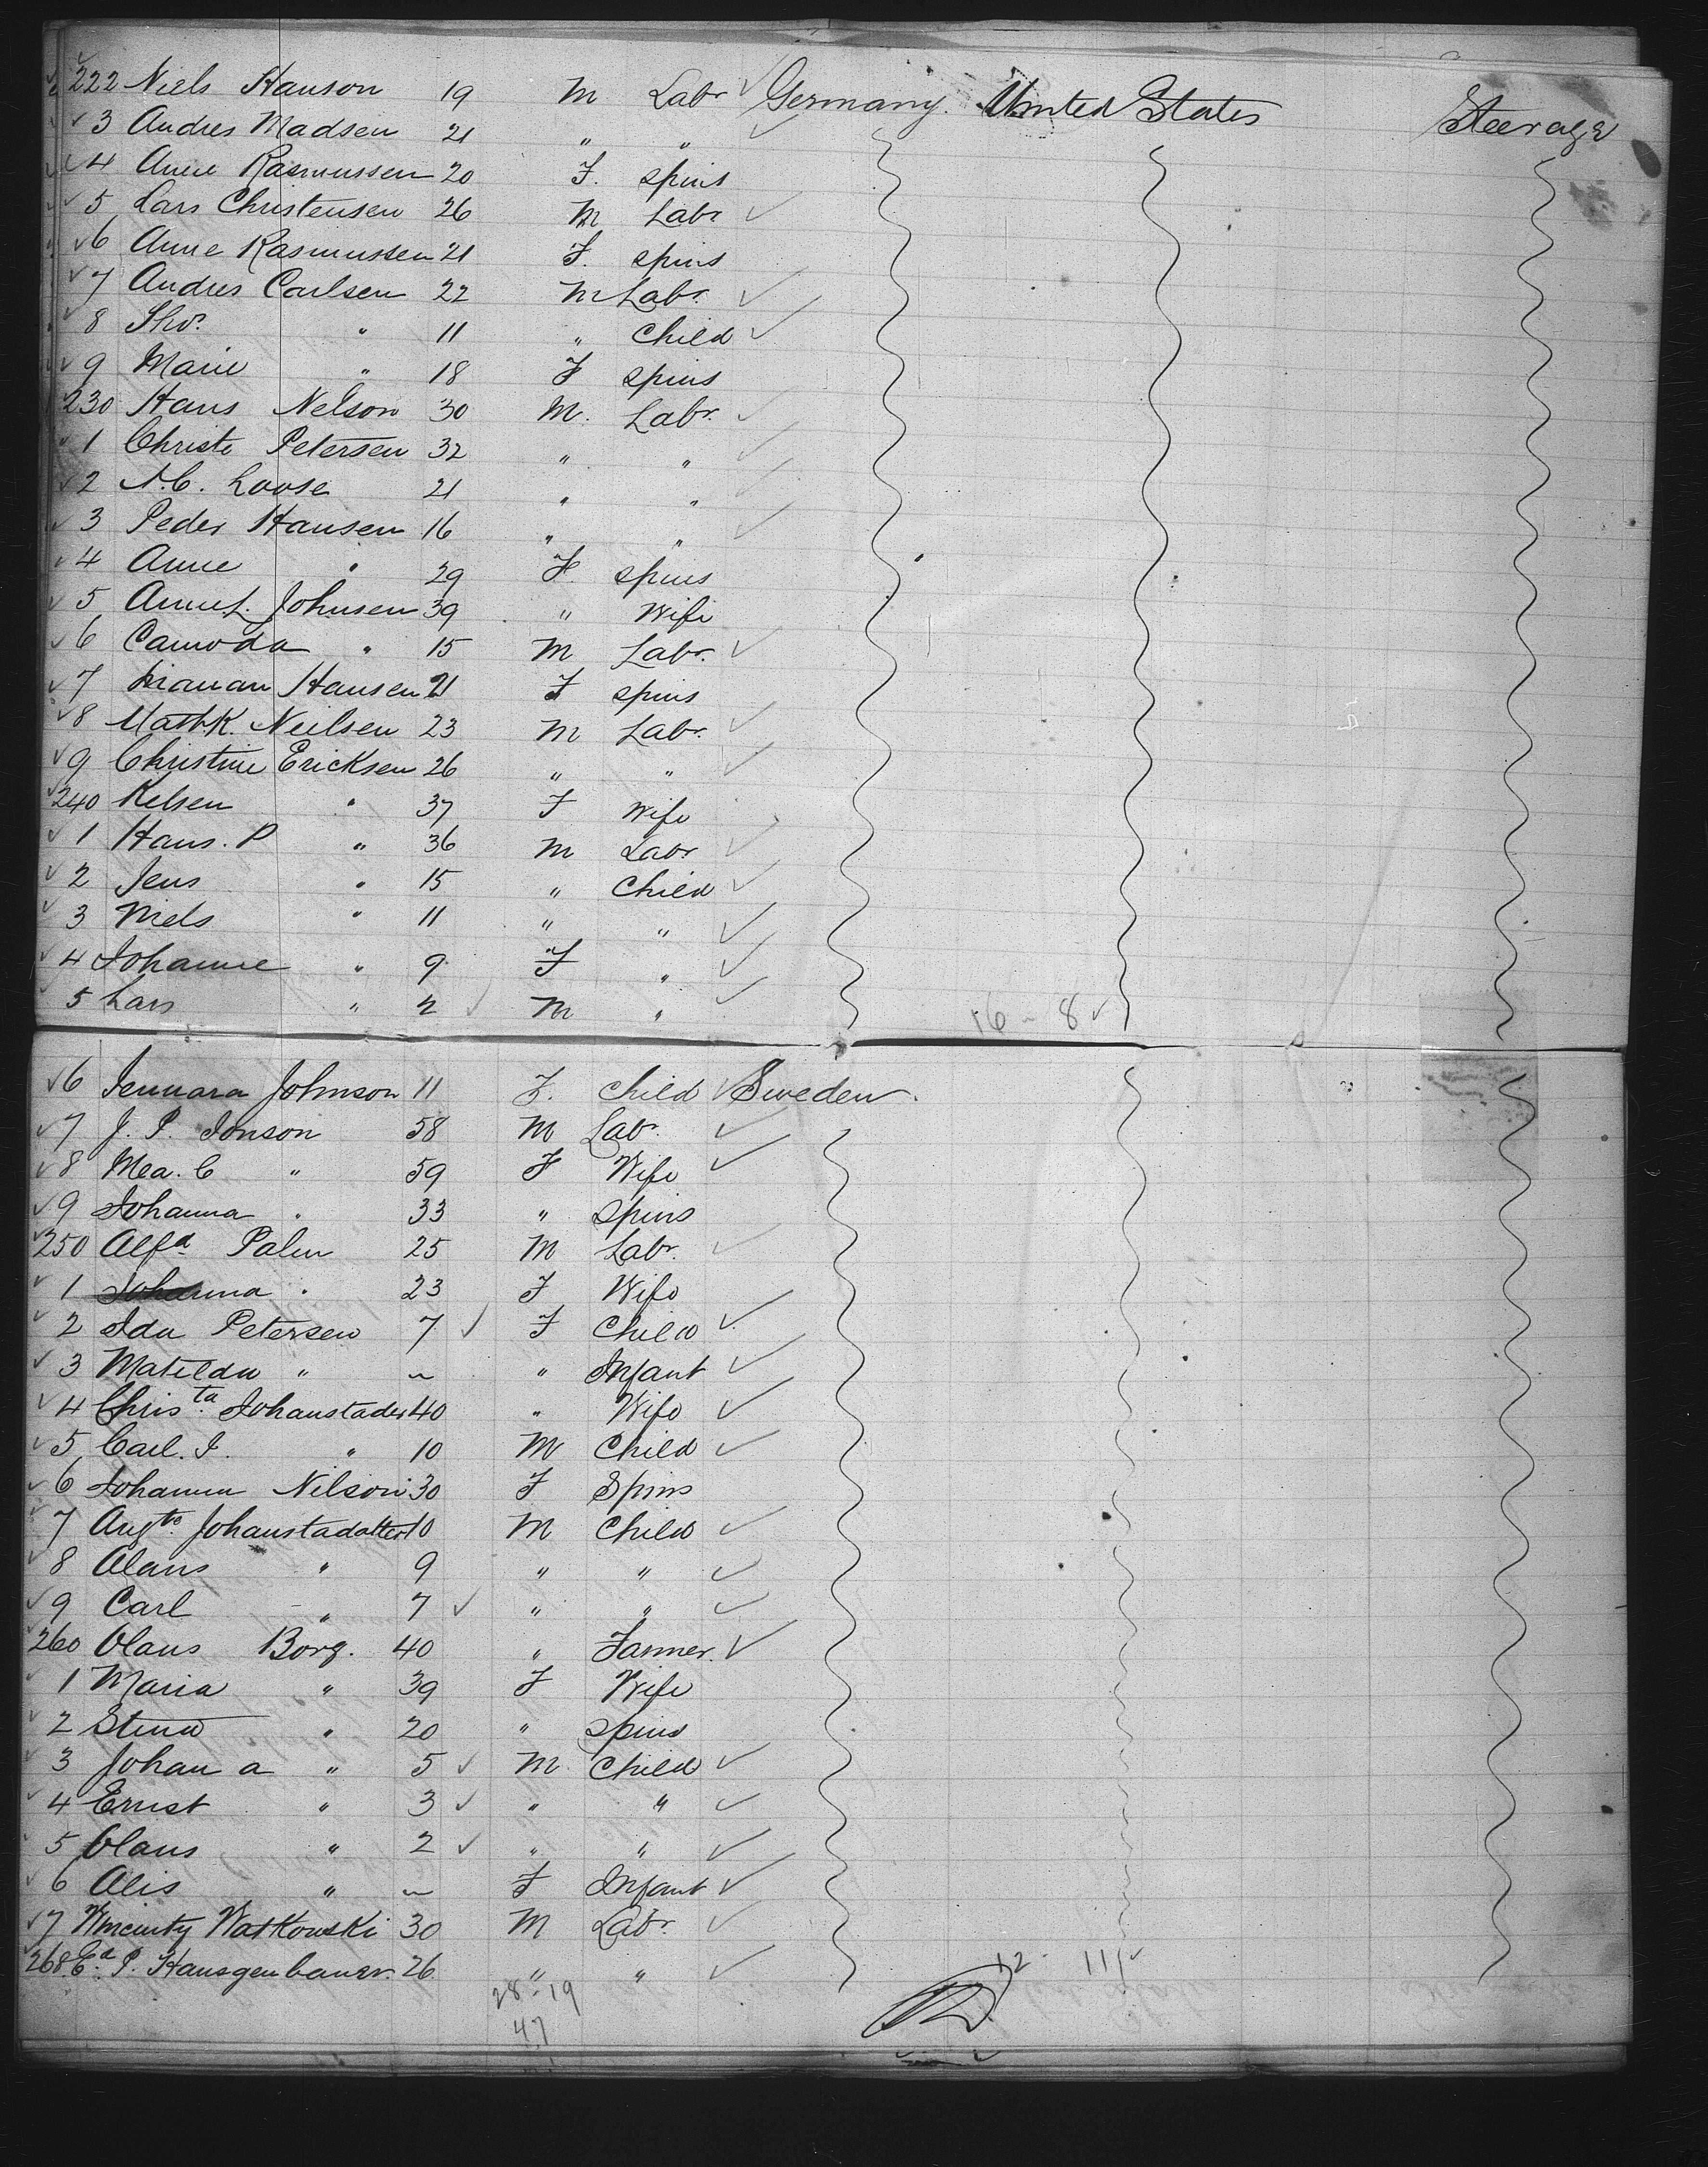 222 Niels Hanson 19 M Labr Germany United States Steerage
3 Andres Madsen 21 " "
4 Anne Rasmussen 20 F. spins
5 Lars Christensen 26 M Labr
6 Anne Rasmussen 21 F. spins
7 Andres Carlsen 22 M Labr.
8 Thos. " 11 " Child
9 Marie " 18 F spins
230 Hans Nelson 30 M. Labr.
1 Christe Petersen 32 " "
2 N.C. Loose 21 " "
3 Peder Hansen 16 " "
4 Anne " 29 F. spins
5 Anne L. Johnsen 39 " Wife
6 Camoda " 15 M Labr.
7 Hansen 21 F spins
8 Math. K. Neilsen 23 M Labr.
9 Christine Ericksen 26 " "
240 Kelsen " 37 F Wife
1 Hans. P " 36 M Labr
2 Jens " 15 " Child
3 Niels " 11 " "
4 Johanne " 9 F "
5 Lars " 2 M "
16 - 8
6 Jennara Johnson 11 F. Child Sweden.
7 J. P. Jonson 58 M Labr.
8 Mea. C " 59 F Wife
9 Johanna " 33 " Spins
250 Alfd Palm 25 M Labr.
1 Johanna " 23 F Wife
2 Ida Petersen 7 F Child
3 Matilda " ~ " Infant
4 Christa. Johanstader 40 " Wife
5 Carl. J. " 10 M Child
6 Johanna Nilson 30 F Spins
7 Augte. Johanstadotter 10 M Child
8 Alans " 9 " "
9 Carl " 7 " "
260 Olaus Borg. 40 " Farmer.
1 Maria " 39 F Wife
2 Stina " 20 " spins
3 Johan a " 5 M Child
4 Ernst " 3 " "
5 Olaus " 2 " "
6 Alis " ~ F Infant
7 Wincinty Watkowski 30 M Labr.
268 Ed. P. Hansgenbauer. 26 " "
12 - 11
28 - 19
47